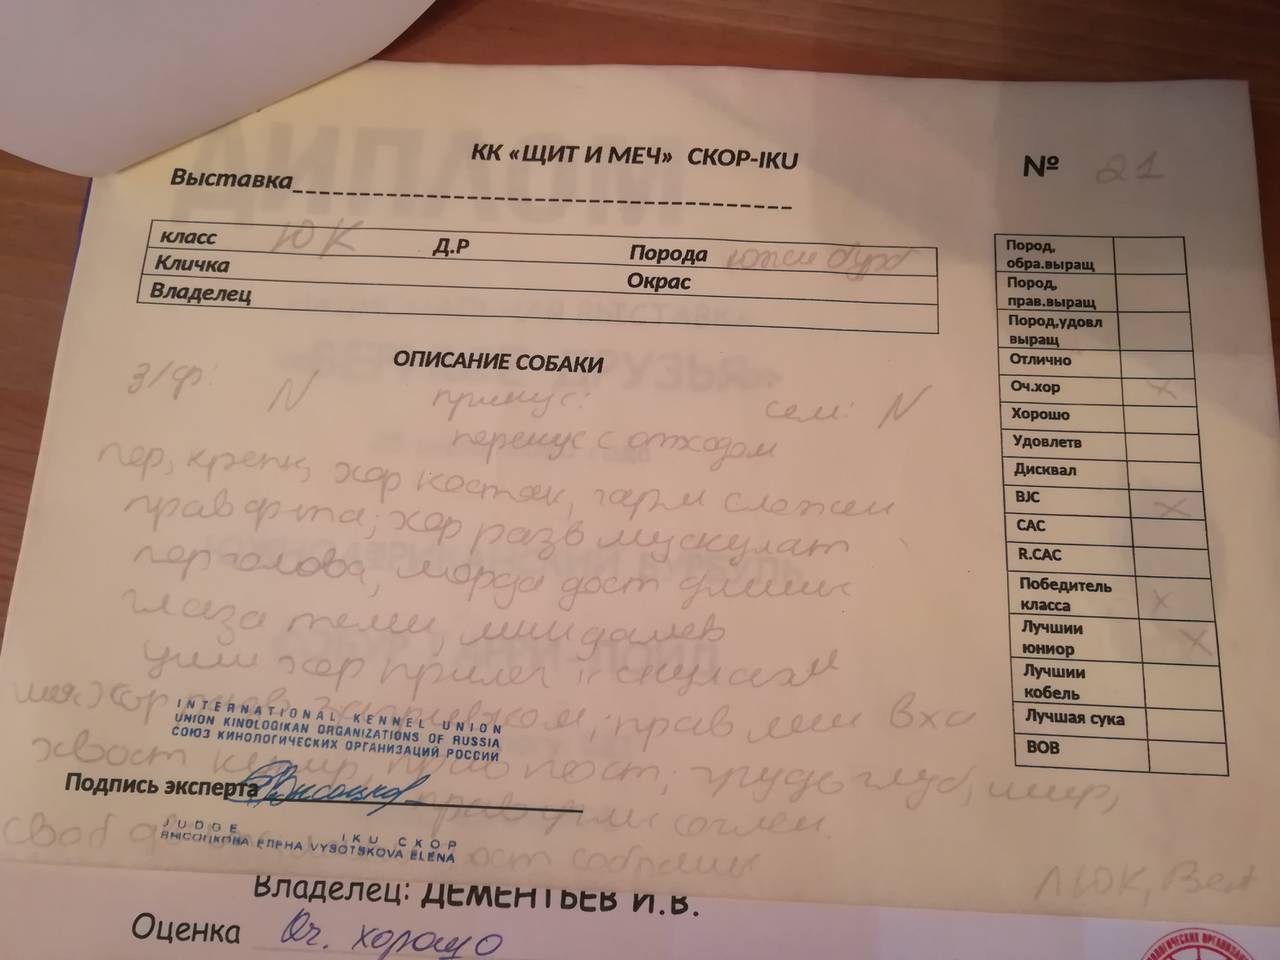 КК «ЩИТ И МЕЧ» СКОР-IKU
№ 21
Выставка
класс ЮК Д.Р Порода южн бурб
Кличка Окрас
Владелец
ОПИСАНИЕ СОБАКИ
з/ф: N прикус: сем: N
перекус с отходом
пер, крепк, хор костяк, гарм сложен
прав ф-та, хор разв мускулат
пер голова, морда дост длины
глаза темн, миндалев
уши хор прилег
хор прав мин вхи
хвост прав пост, грудь глуб, шир,
прав углы сочлен.
своб ост собраны
ЛЮК,
Пород, обра.выращ
Пород, прав.выращ
Пород,удовл выращ
Отлично
Оч.хор X
Хорошо
Удовлетв
Дисквал
BJC X
CAC
R.CAC
Победитель класса X
Лучшии юниор X
Лучшии кобель
Лучшая сука
BOB
INTERNATIONAL KENNEL UNION
UNION KINOLOGIKAN ORGANIZATIONS OF RUSSIA
СОЮЗ КИНОЛОГИЧЕСКИХ ОРГАНИЗАЦИЙ РОССИИ
Подпись эксперта
JUDGE IKU СКОР
ВЫСОЦКОВА ЕЛЕНА VYSOTSKOVA ELENA
Владелец: ДЕМЕНТЬЕВ И.В.
Оценка Оч. хорошо